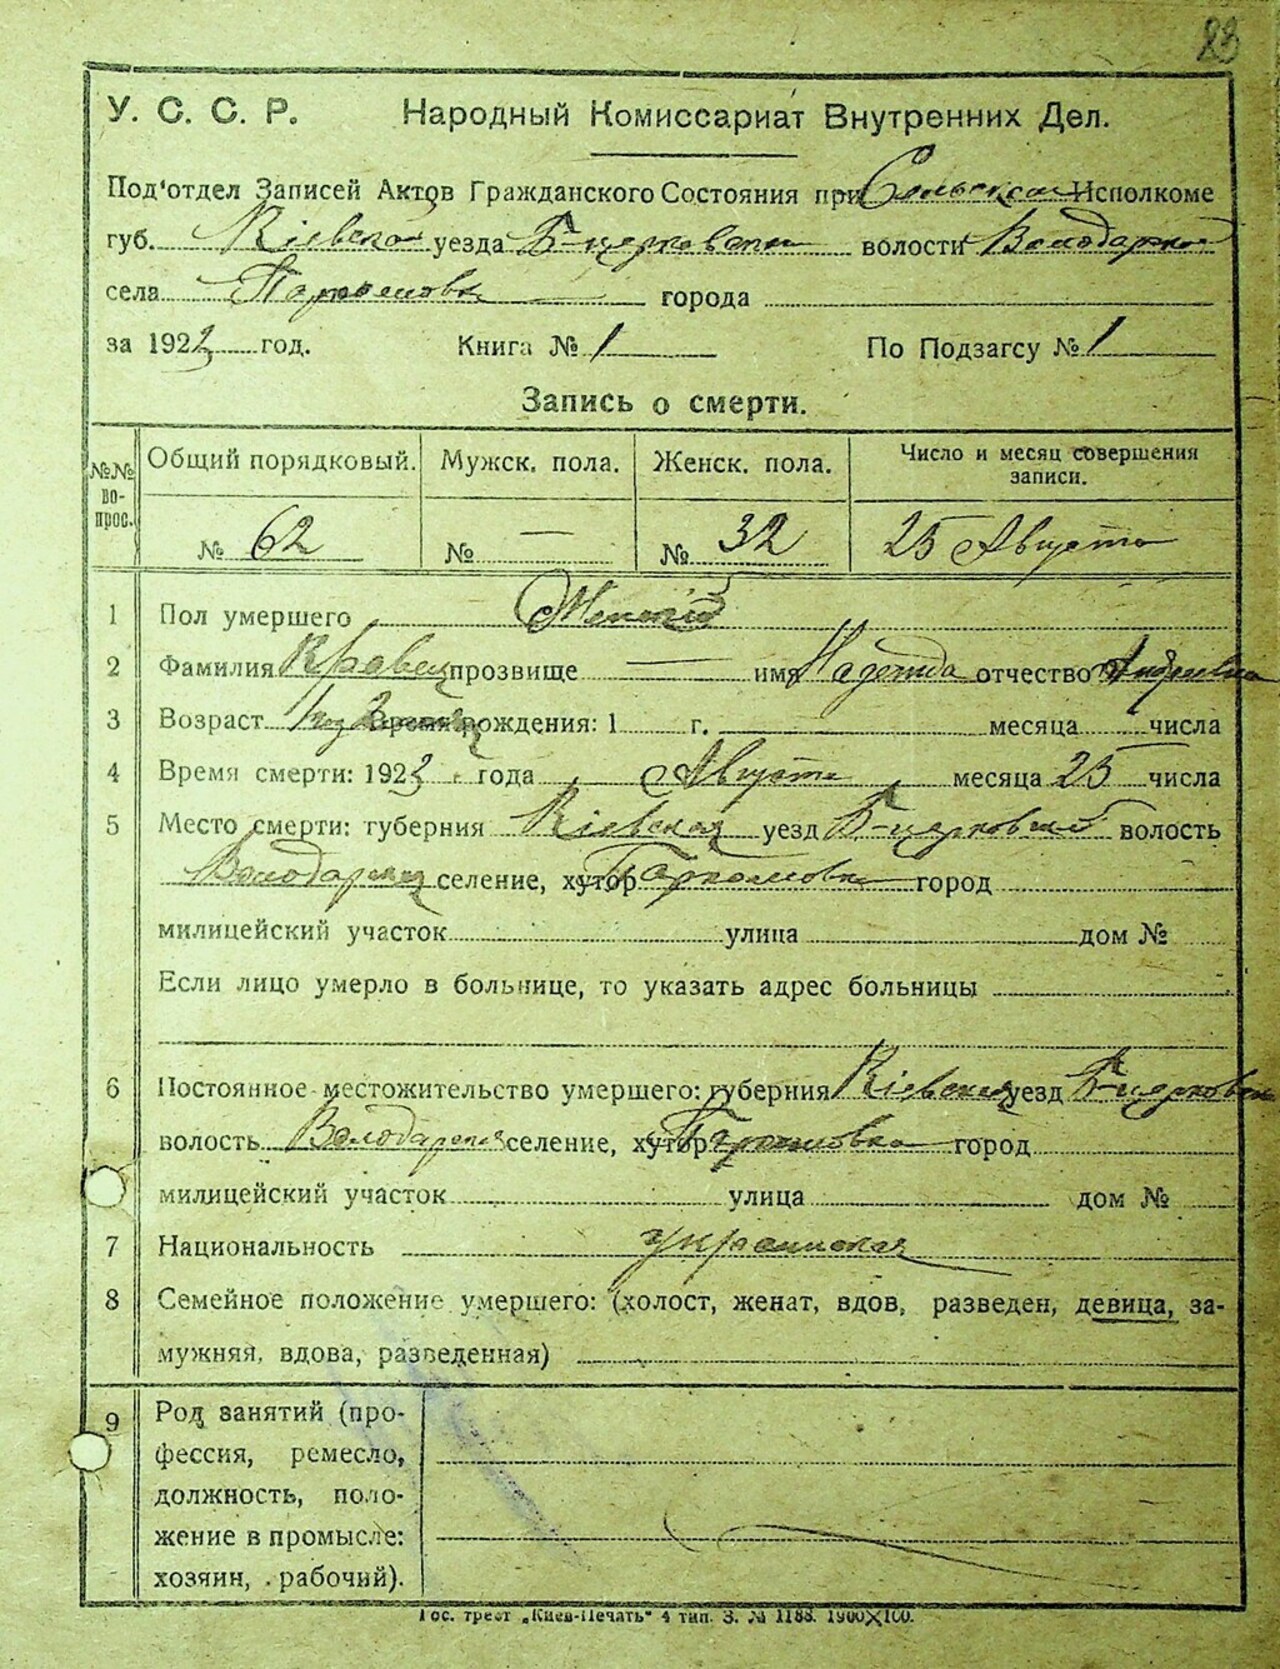 23
У. С. С. Р. Народный Комиссариат Внутренних Дел.
Под'отдел Записей Актов Гражданского Состояния при Сельском Исполкоме
губ. Кіевской уезда Б-церковского волости Володарской
села Пархомовка города
за 1923 год. Книга № 1 По Подзагсу № 1
Запись о смерти.
№№ во-прос. Общий порядковый. Мужск. пола. Женск. пола. Число и месяц совершения записи.
№ 62 № — № 32 25 Августа
1 Пол умершего Женский
2 Фамилия Кравец прозвище — имя Надежда отчество Андреевна
3 Возраст 1 год Время рождения: 1 г. месяца числа
4 Время смерти: 1923 года Августа месяца 25 числа
5 Место смерти: губерния Кіевская уезд Б-церковский волость
Володарская селение, хутор Пархомовка город
милицейский участок улица дом №
Если лицо умерло в больнице, то указать адрес больницы
6 Постоянное местожительство умершего: губерния Кіевская уезд Б-церковск
волость Володарская селение, хутор Пархомовка город
милицейский участок улица дом №
7 Национальность украинская
8 Семейное положение умершего: (холост, женат, вдов, разведен, девица, за-
мужняя, вдова, разведенная)
9 Род занятий (про-
фессия, ремесло,
должность, поло-
жение в промысле:
хозяин, рабочий).
Гос. трест „Киев-Печать" 4 тип. З. № 1188. 1900X100.